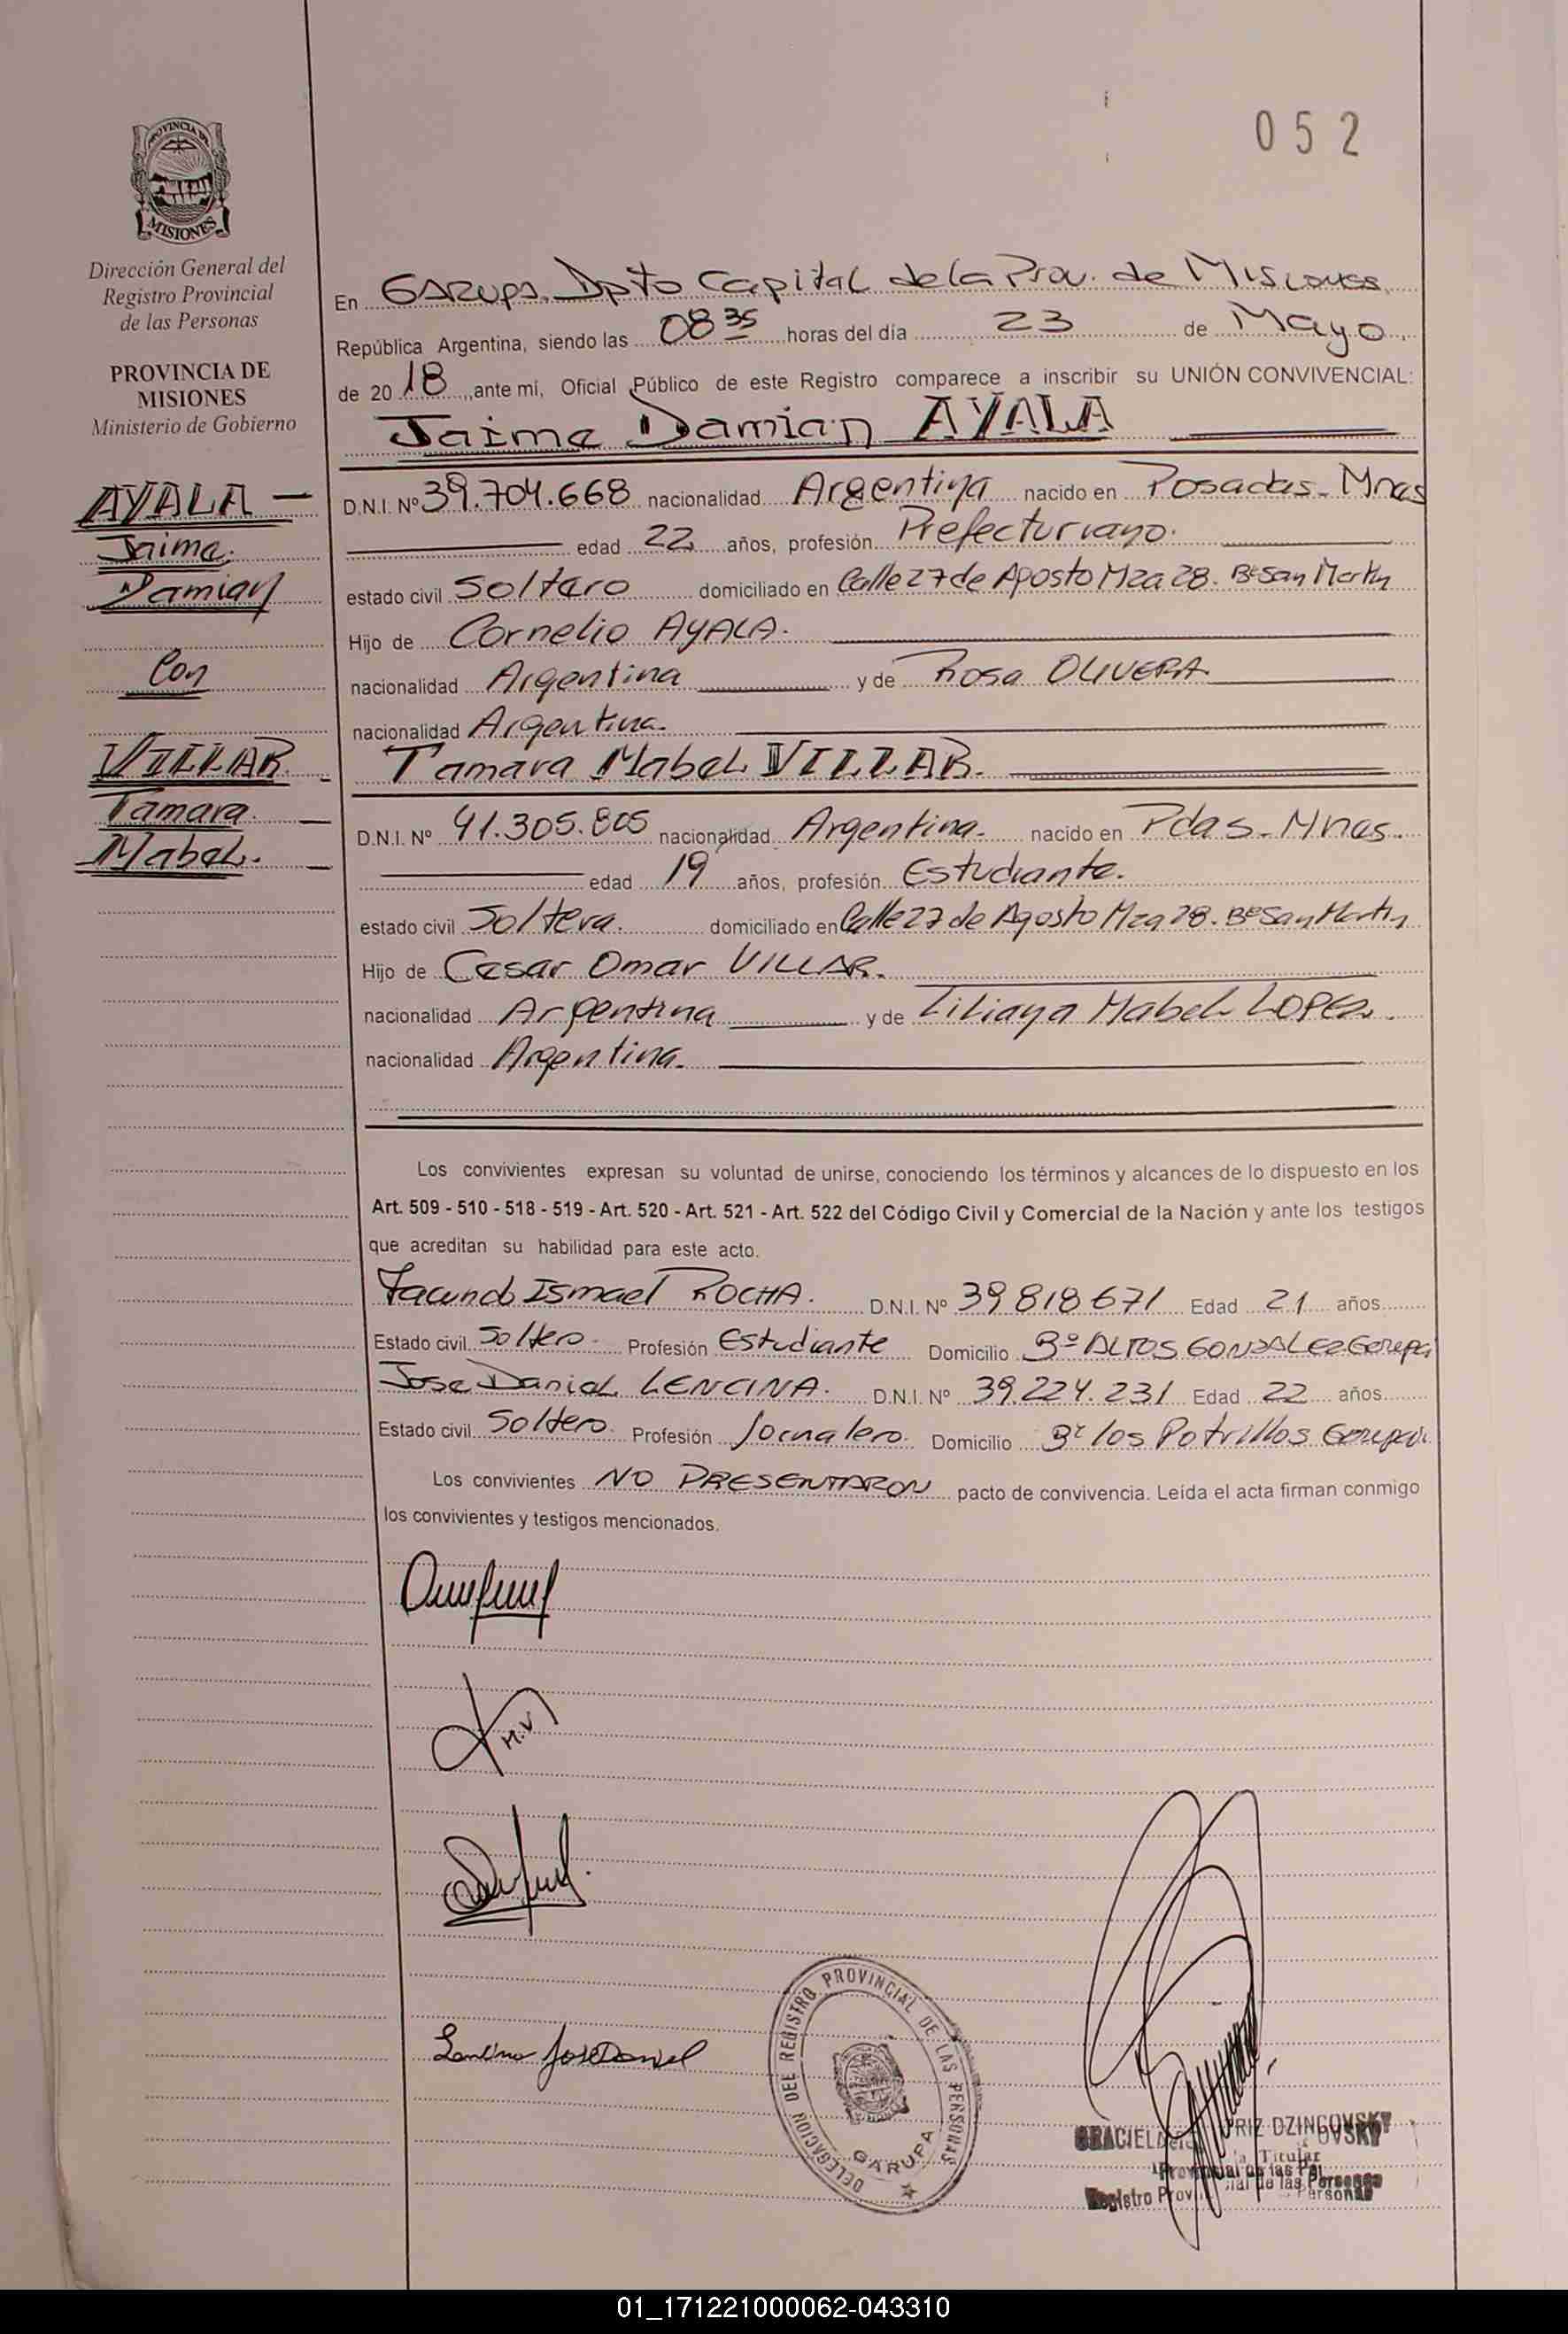 052
PROVINCIA DE
MISIONES
Dirección General del
Registro Provincial
de las Personas
PROVINCIA DE
MISIONES
Ministerio de Gobierno
AYALA
Jaime
Damian
Con
VILLAR
Tamara
Mabel
En GARUPA Dpto Capital de la Prov. de Misiones
República Argentina, siendo las 08 35 horas del día 23 de Mayo
de 2018, ante mí, Oficial Público de este Registro comparece a inscribir su UNIÓN CONVIVENCIAL:
Jaime Damian AYALA
D.N.I. Nº 39.704.668 nacionalidad Argentina nacido en Posadas - Mnes
edad 22 años, profesión Prefecturiano.
estado civil Soltero domiciliado en Calle 27 de Agosto Mza 28. Bº San Martin
Hijo de Cornelio AYALA.
nacionalidad Argentina y de Rosa OLIVERA
nacionalidad Argentina.
Tamara Mabel VILLAR.
D.N.I. Nº 41.305.805 nacionalidad Argentina. nacido en Pdas - Mnes.
edad 19 años, profesión Estudiante.
estado civil Soltera. domiciliado en Calle 27 de Agosto Mza 28. Bº San Martin
Hijo de Cesar Omar VILLAR.
nacionalidad Argentina y de Liliana Mabel LOPEZ.
nacionalidad Argentina.
Los convivientes expresan su voluntad de unirse, conociendo los términos y alcances de lo dispuesto en los
Art. 509 - 510 - 518 - 519 - Art. 520 - Art. 521 - Art. 522 del Código Civil y Comercial de la Nación y ante los testigos
que acreditan su habilidad para este acto.
Facundo Ismael ROCHA. D.N.I. Nº 39818671 Edad 21 años
Estado civil Soltero. Profesión Estudiante Domicilio Bº ALTOS GONZALEZ Garupa
Jose Daniel LENCINA. D.N.I. Nº 39.224.231 Edad 22 años
Estado civil Soltero. Profesión Jornalero. Domicilio Bº los Potrillos Garupa.
Los convivientes NO PRESENTARON pacto de convivencia. Leída el acta firman conmigo
los convivientes y testigos mencionados.
M.V
Lencina Jose Daniel
DELEGACION DEL REGISTRO PROVINCIAL DE LAS PERSONAS
GARUPA
DZINGOVSKY
Titular
Provincial de las
Registro de las Personas
01_171221000062-043310